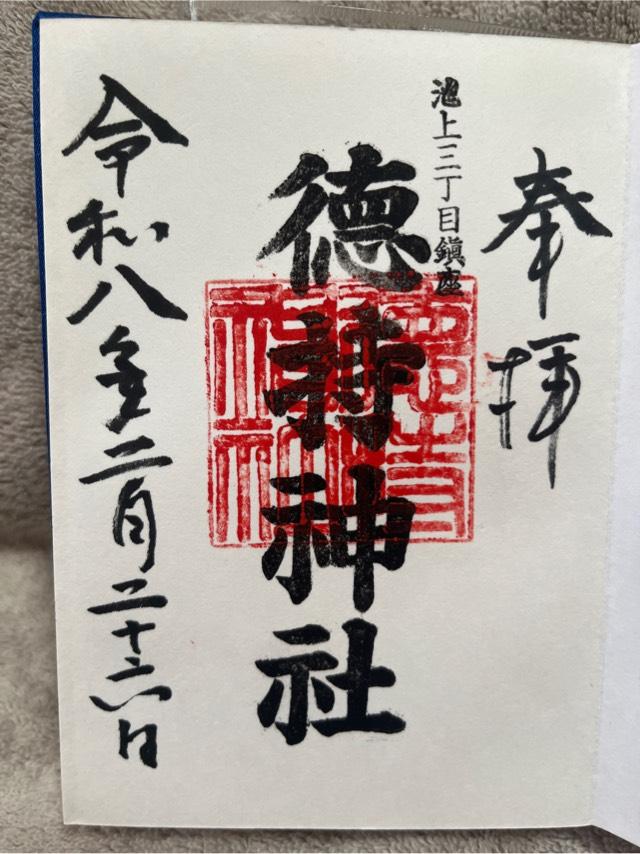 奉拝
池上三丁目鎮座
徳持神社
令和八年二月二十六日